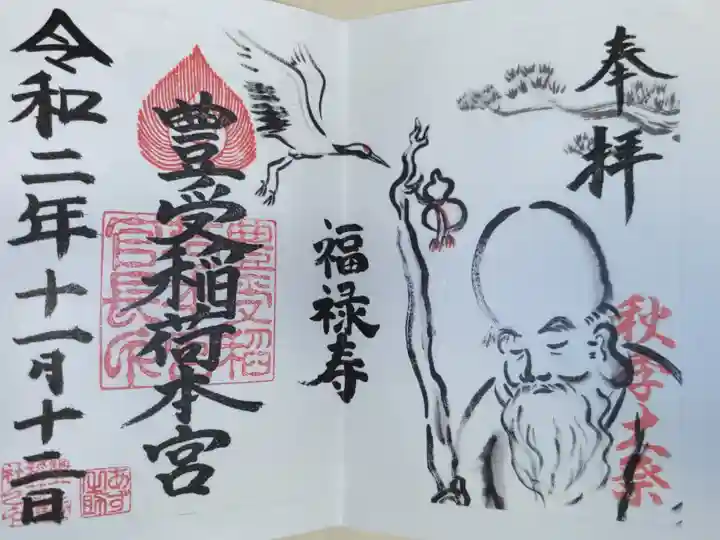 奉拝
秋季大祭
福禄寿
豊受稲荷本宮
令和二年十一月十二日